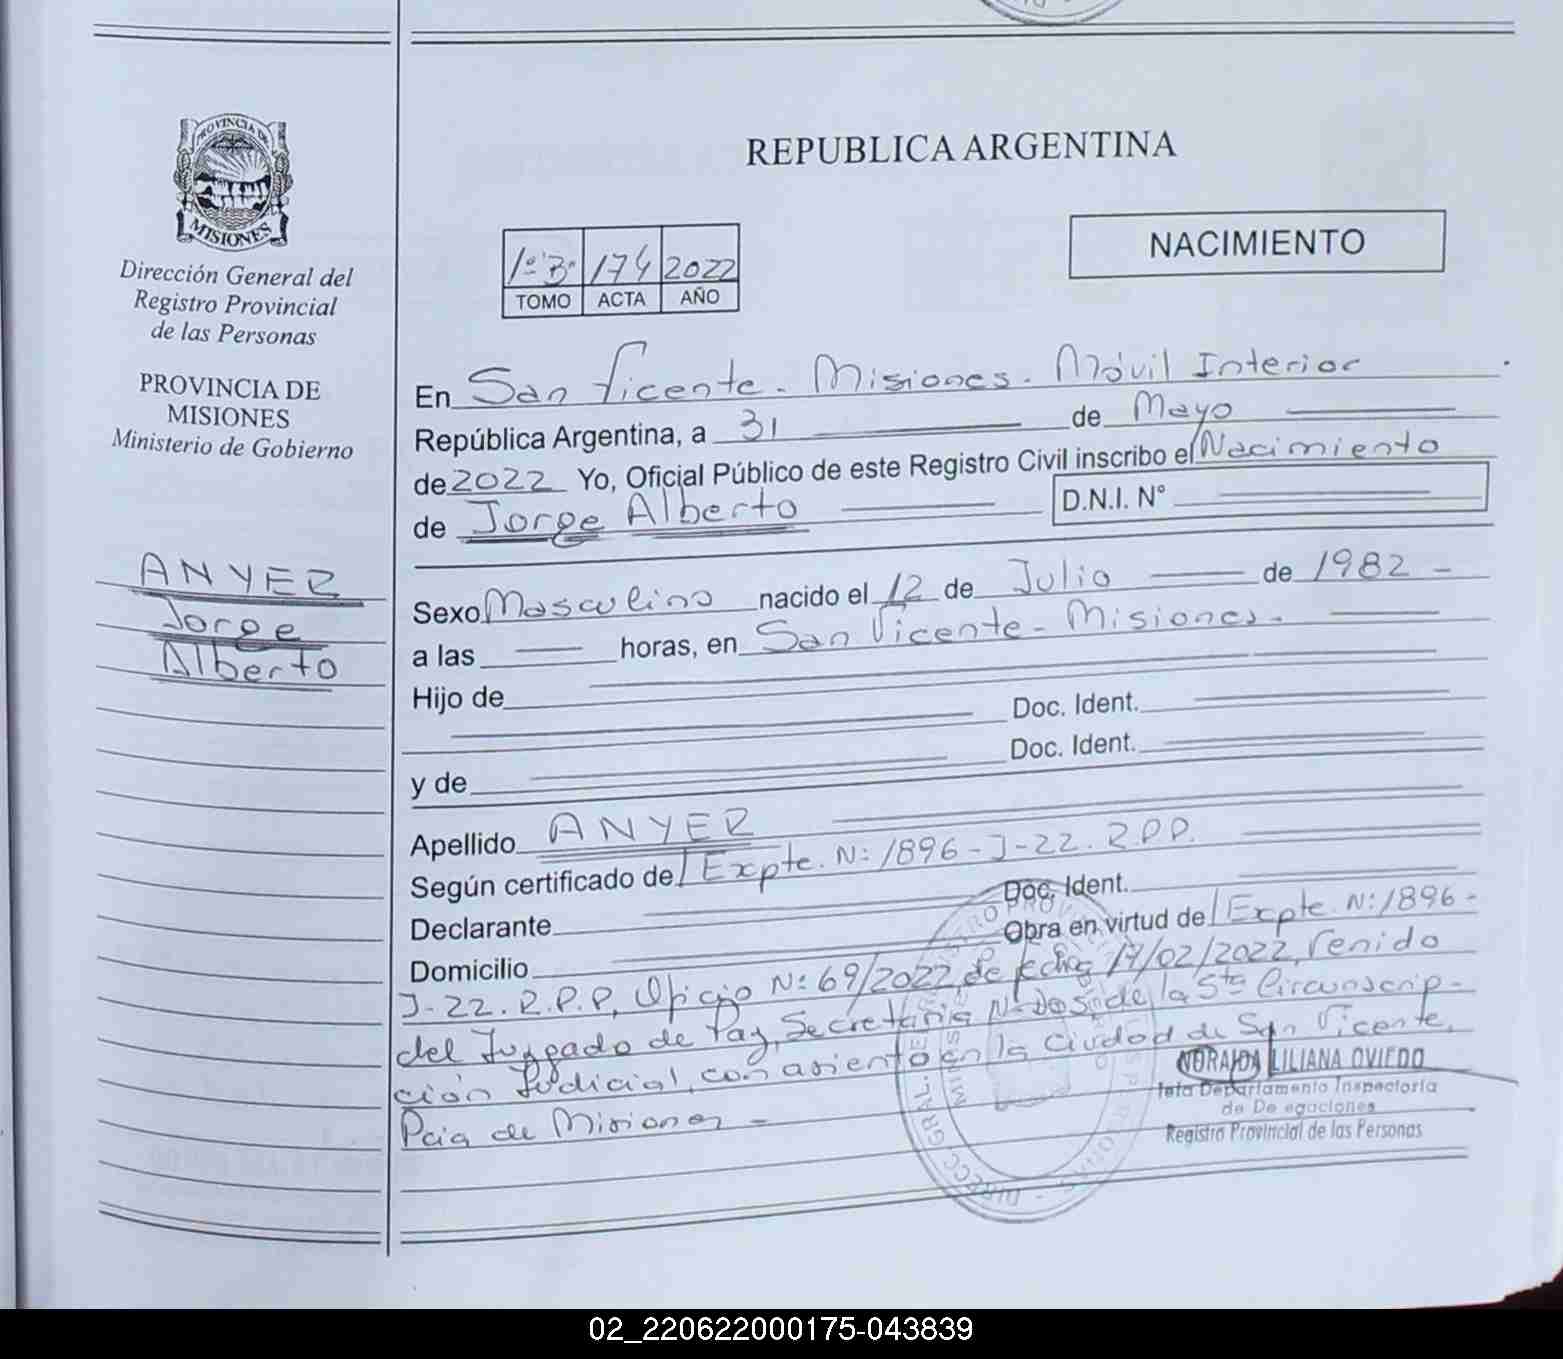 PROVINCIA DE
MISIONES
Dirección General del
Registro Provincial
de las Personas
PROVINCIA DE
MISIONES
Ministerio de Gobierno
ANYER
Jorge
Alberto
REPUBLICA ARGENTINA
NACIMIENTO
1º "B" 174 2022
TOMO ACTA AÑO
En San Vicente - Misiones - Móvil Interior
República Argentina, a 31 de Mayo
de 2022 Yo, Oficial Público de este Registro Civil inscribo el Nacimiento
de Jorge Alberto D.N.I. N°
Sexo Masculino nacido el 12 de Julio de 1982 -
a las horas, en San Vicente - Misiones -
Hijo de
Doc. Ident.
Doc. Ident.
y de
Apellido ANYER
Según certificado de Expte. Nº 1896-J-22. R.P.P.
Declarante Doc. Ident.
Domicilio Obra en virtud de Expte. Nº 1896-
J-22. R.P.P, Oficio Nº 69/2022 de fecha 17/02/2022, venido
del Juzgado de Paz, Secretaria Nº Dos, de la 5ta Circunscrip-
ción Judicial, con asiento en la Ciudad de San Vicente,
Pcia de Misiones -
NORAIDA LILIANA OVIEDO
Jefa Departamento Inspectoria
de Delegaciones
Registro Provincial de las Personas
02_220622000175-043839